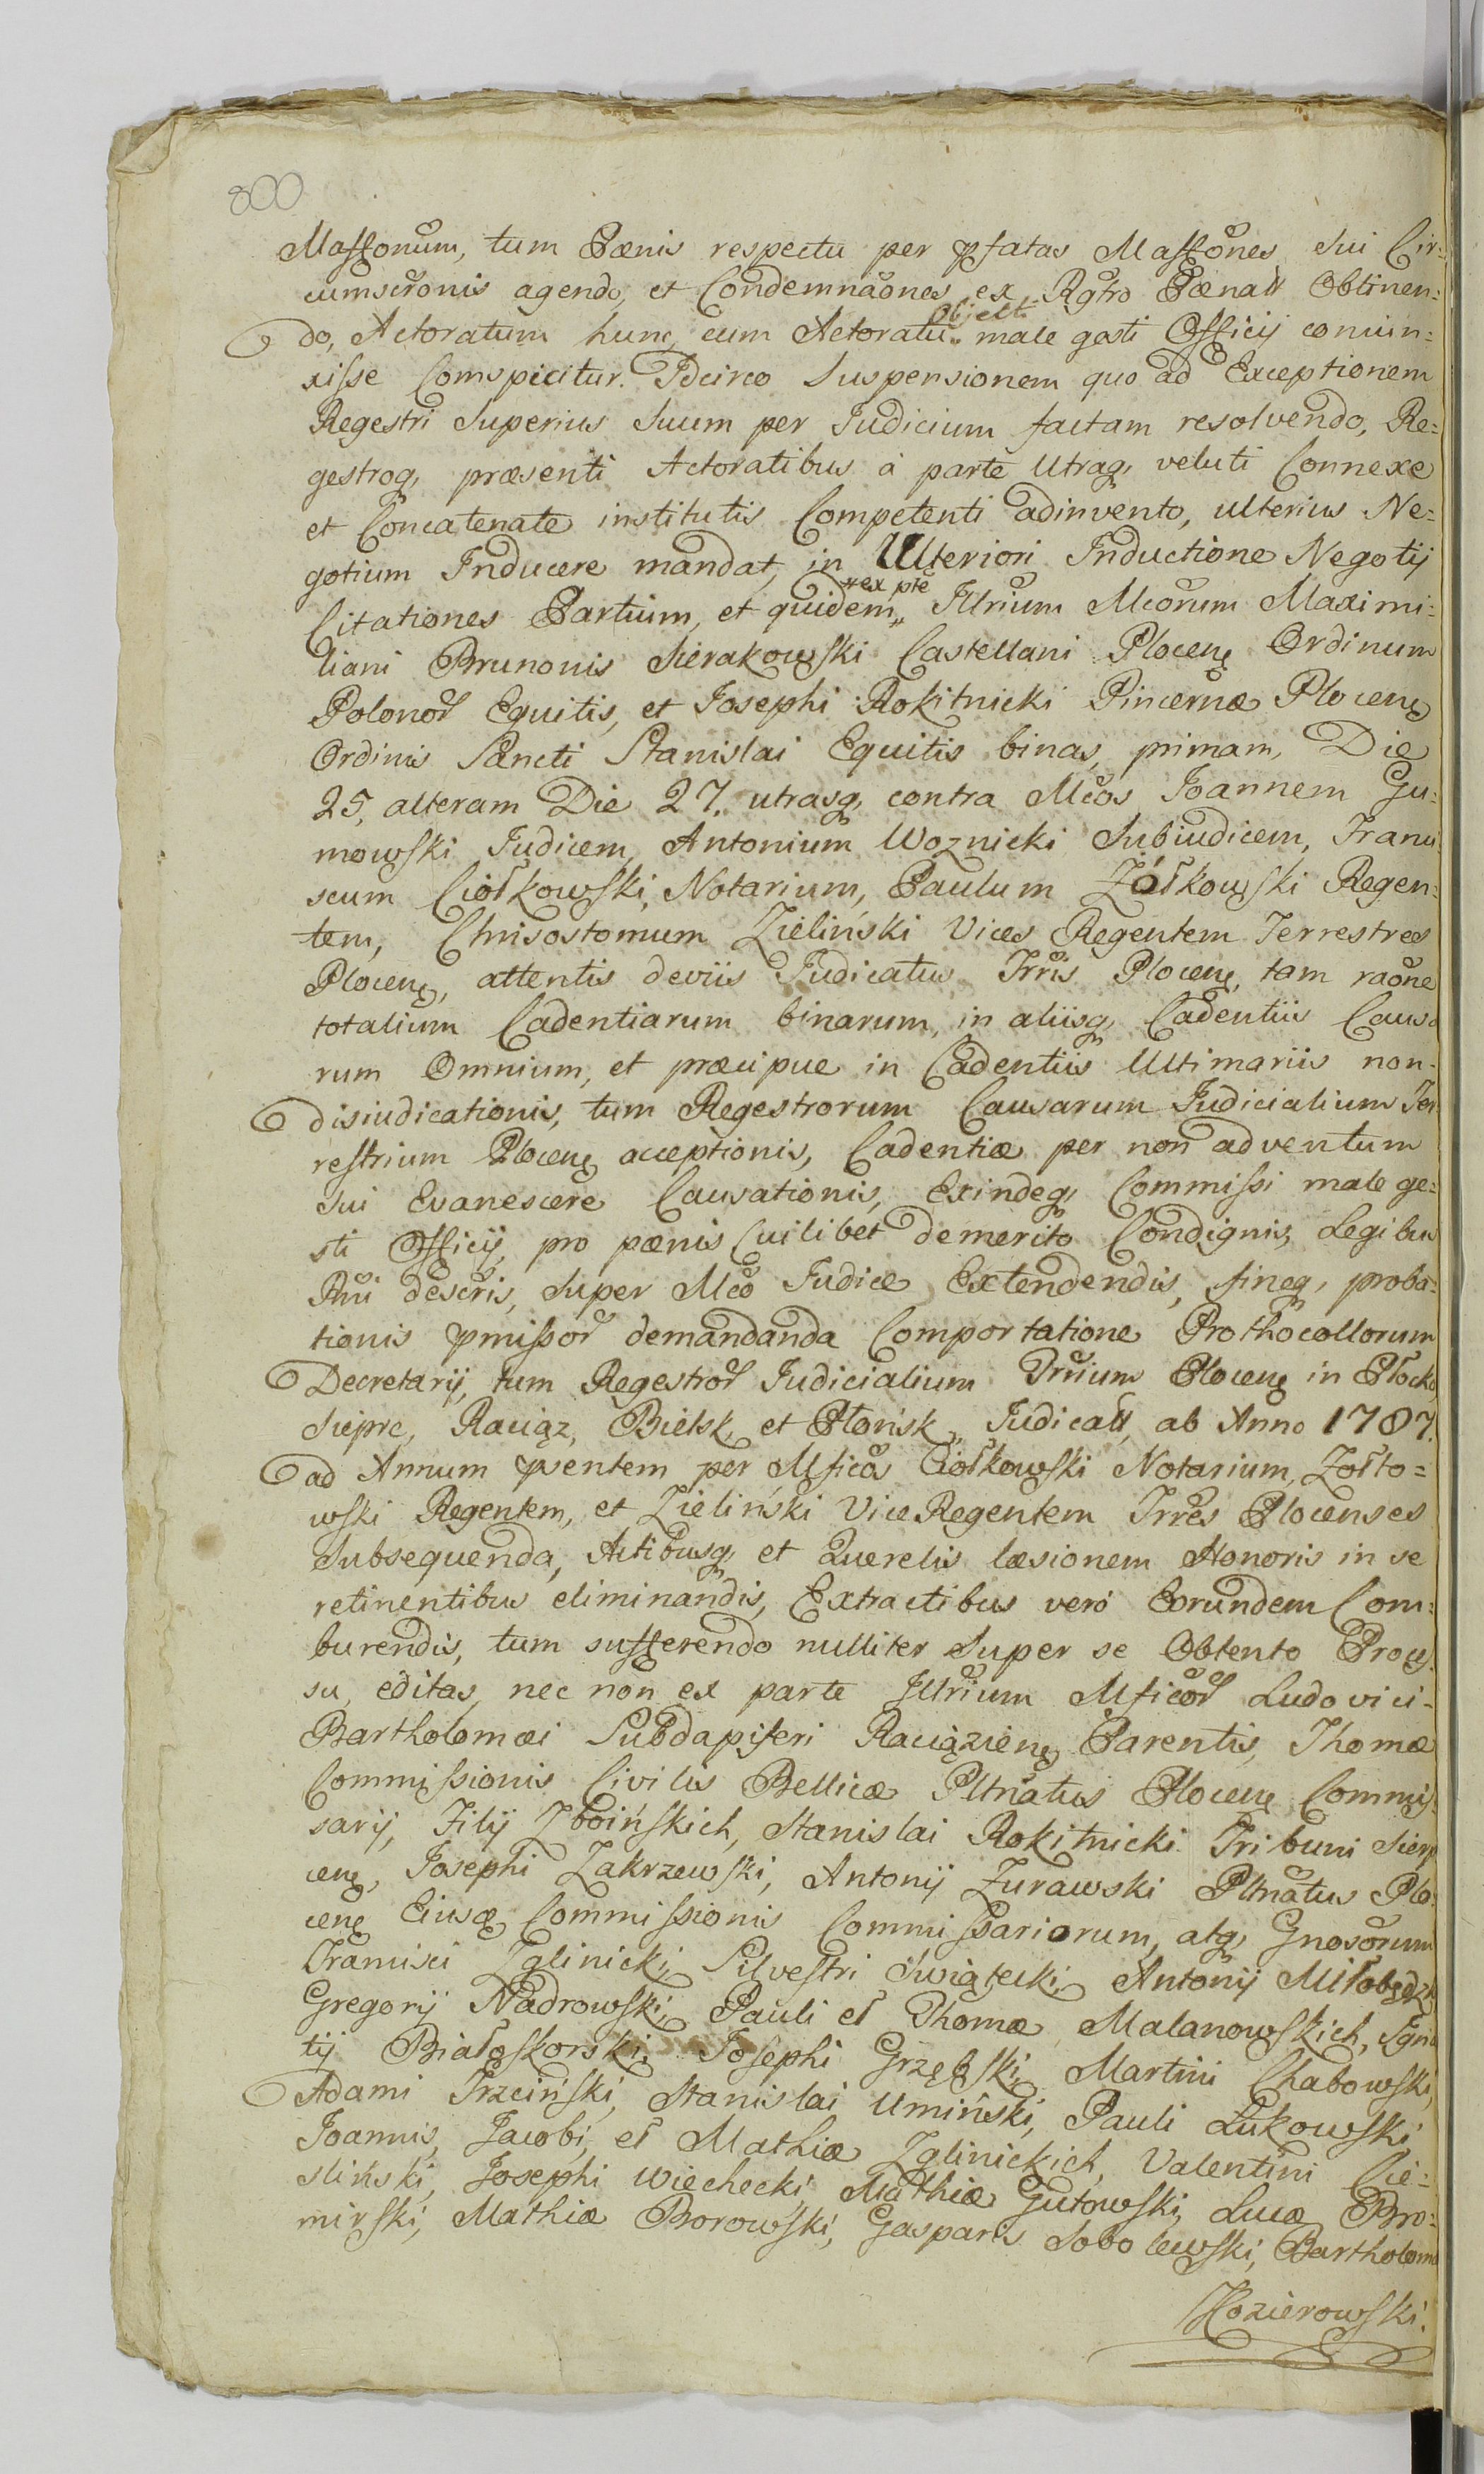 800
Massonum, tum Pænis respectu per pfatas Massones sui Cir=
cumscronis agendo, et Condemnaones ex Rgtro Pænali Obtinen=
Objecti
do, Actoratum hunc cum Actoratu male gesti Officij coniun=
xisse Comspicitur. Idcirco Suspensionem quo ad Exceptionem
Regestri Superius Suum per Judicium factam resolvendo, Re=
gestroq, præsenti Actoratibus à parte Utraq, veluti Connexe
et Concatenate institutis Competenti adinvento, ulterius Ne=
gotium Inducere mandat, in Ulteriori Inductione Negotij
ex pte
Citationes Partium, et quidem Illrium Mcorum Maximi=
liani Brunonis Sierakowski Castellani Plocens Ordinum
Polonor Equitis, et Josephi Rokitnicki Pincernæ Plocens
Ordinis Sancti Stanislai Equitis binas, primam, Die
25, alteram Die 27. utrasq, contra Mcos Joannem Gu=
mowski Judicem, Antonium Woznicki Subiudicem, Franci
scum Ciołkowski, Notarium, Paulum Żółkowski Regen=
tem, Chrisostomum Zieliński Vices Regentem Terrestres
Plocens, attentis deviis Judicatus Trris Plocens, tam raone
totalium Cadentiarum binarum, in aliisq, Cadentiis Causa
rum Omnium, et præcipue in Cadentiis Ultimariis non=
disiudicationis, tum Regestrorum Causarum Judicialium Ter
restrium Plocens acceptionis, Cadentiæ per non adventum
sui Evanescere Causationis, Exindeq, Commissi male ge=
sti Officij, pro pænis Cuilibet demerito Condignis, Legibus
Rni descris, Super Mco Judice Extendendis, fineq, proba=
tionis pmissor demandanda Comportatione Prothocollorum
Decretarij, tum Regestror Judicialium Trrium Plocens in Płock,
Sieprc, Raciąz, Bielsk, et Płońsk, Judicatt, ab Anno 1787.
ad Annum psentem per Mficos Ciołkowski Notarium, Zołto=
wski Regentem, et Zieliński ViceRegentem Trres Plocenses
Subsequenda, Actibusq, et Querelis læsionem Honoris in se
retinentibus eliminandis, Extractibus veró Eorundem Com=
burendis, tum sufferendo nulliter Super se Obtento Proces=
su, editas, nec non ex parte Illrium Mficor Ludovici=
Bartholomæi Subdapiferi Raciąziens Parentis, Thomæ
Commissionis Civilis Bellicæ Pltnatus Plocens Commis=
sarij, Filij Zboińskich, Stanislai Rokitnicki Tribuni Sierp
cens, Josephi Zakrzewski, Antonij Zurawski Pltnatus Plo
cens Eiusd Commissionis Commissariorum, atq, Gnosorum
Francisci Zglinicki, Silvestri Swiątecki, Antonij Miłobędz
Gregorij Nadrowski, Pauli et Thomæ Malanowskich, Igna
tij Białoskorski, Josephi Grzębski, Martini Chabowski,
Adami Trzciński, Stanislai Umiński, Pauli Łukowski,
Joannis, Jacobi, et Mathiæ Zglinickich, Valentini Cie=
śliński, Josephi Wiechecki, Mathiæ Gutowski, Lucæ Bro=
mirski, Mathiæ Borowski, Gasparis Sobolewski, Bartholomæ
Kozierowski.